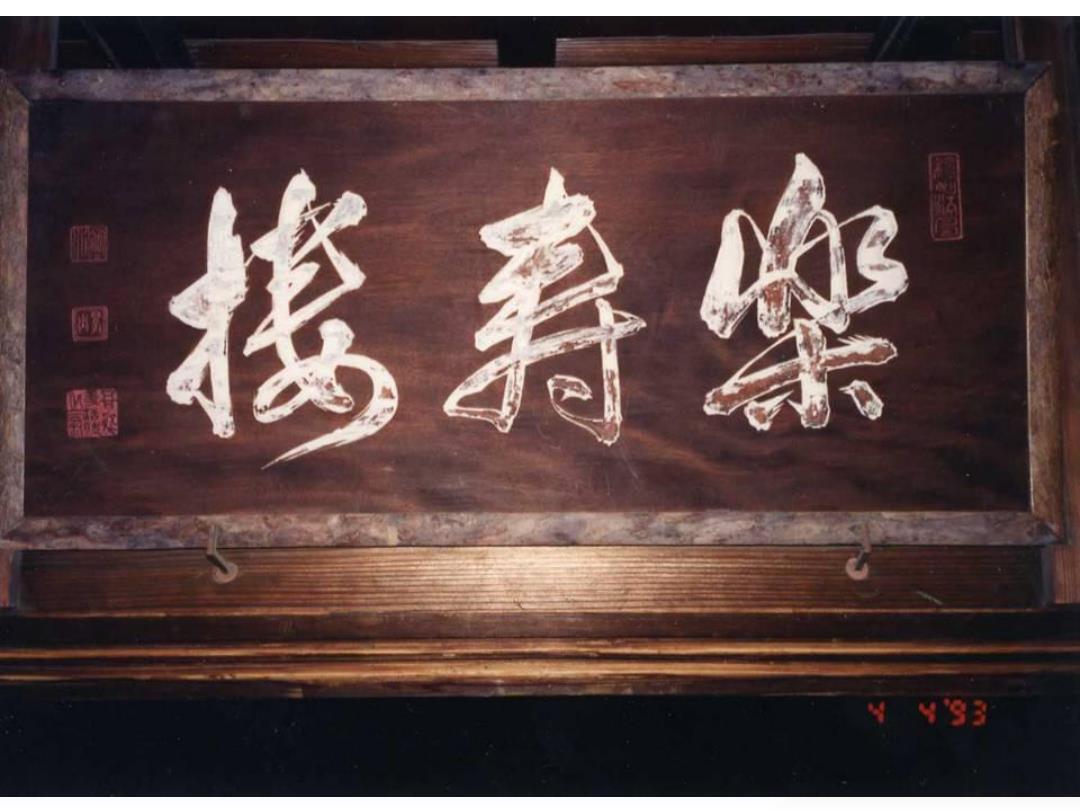 樂壽樓
4 4'93